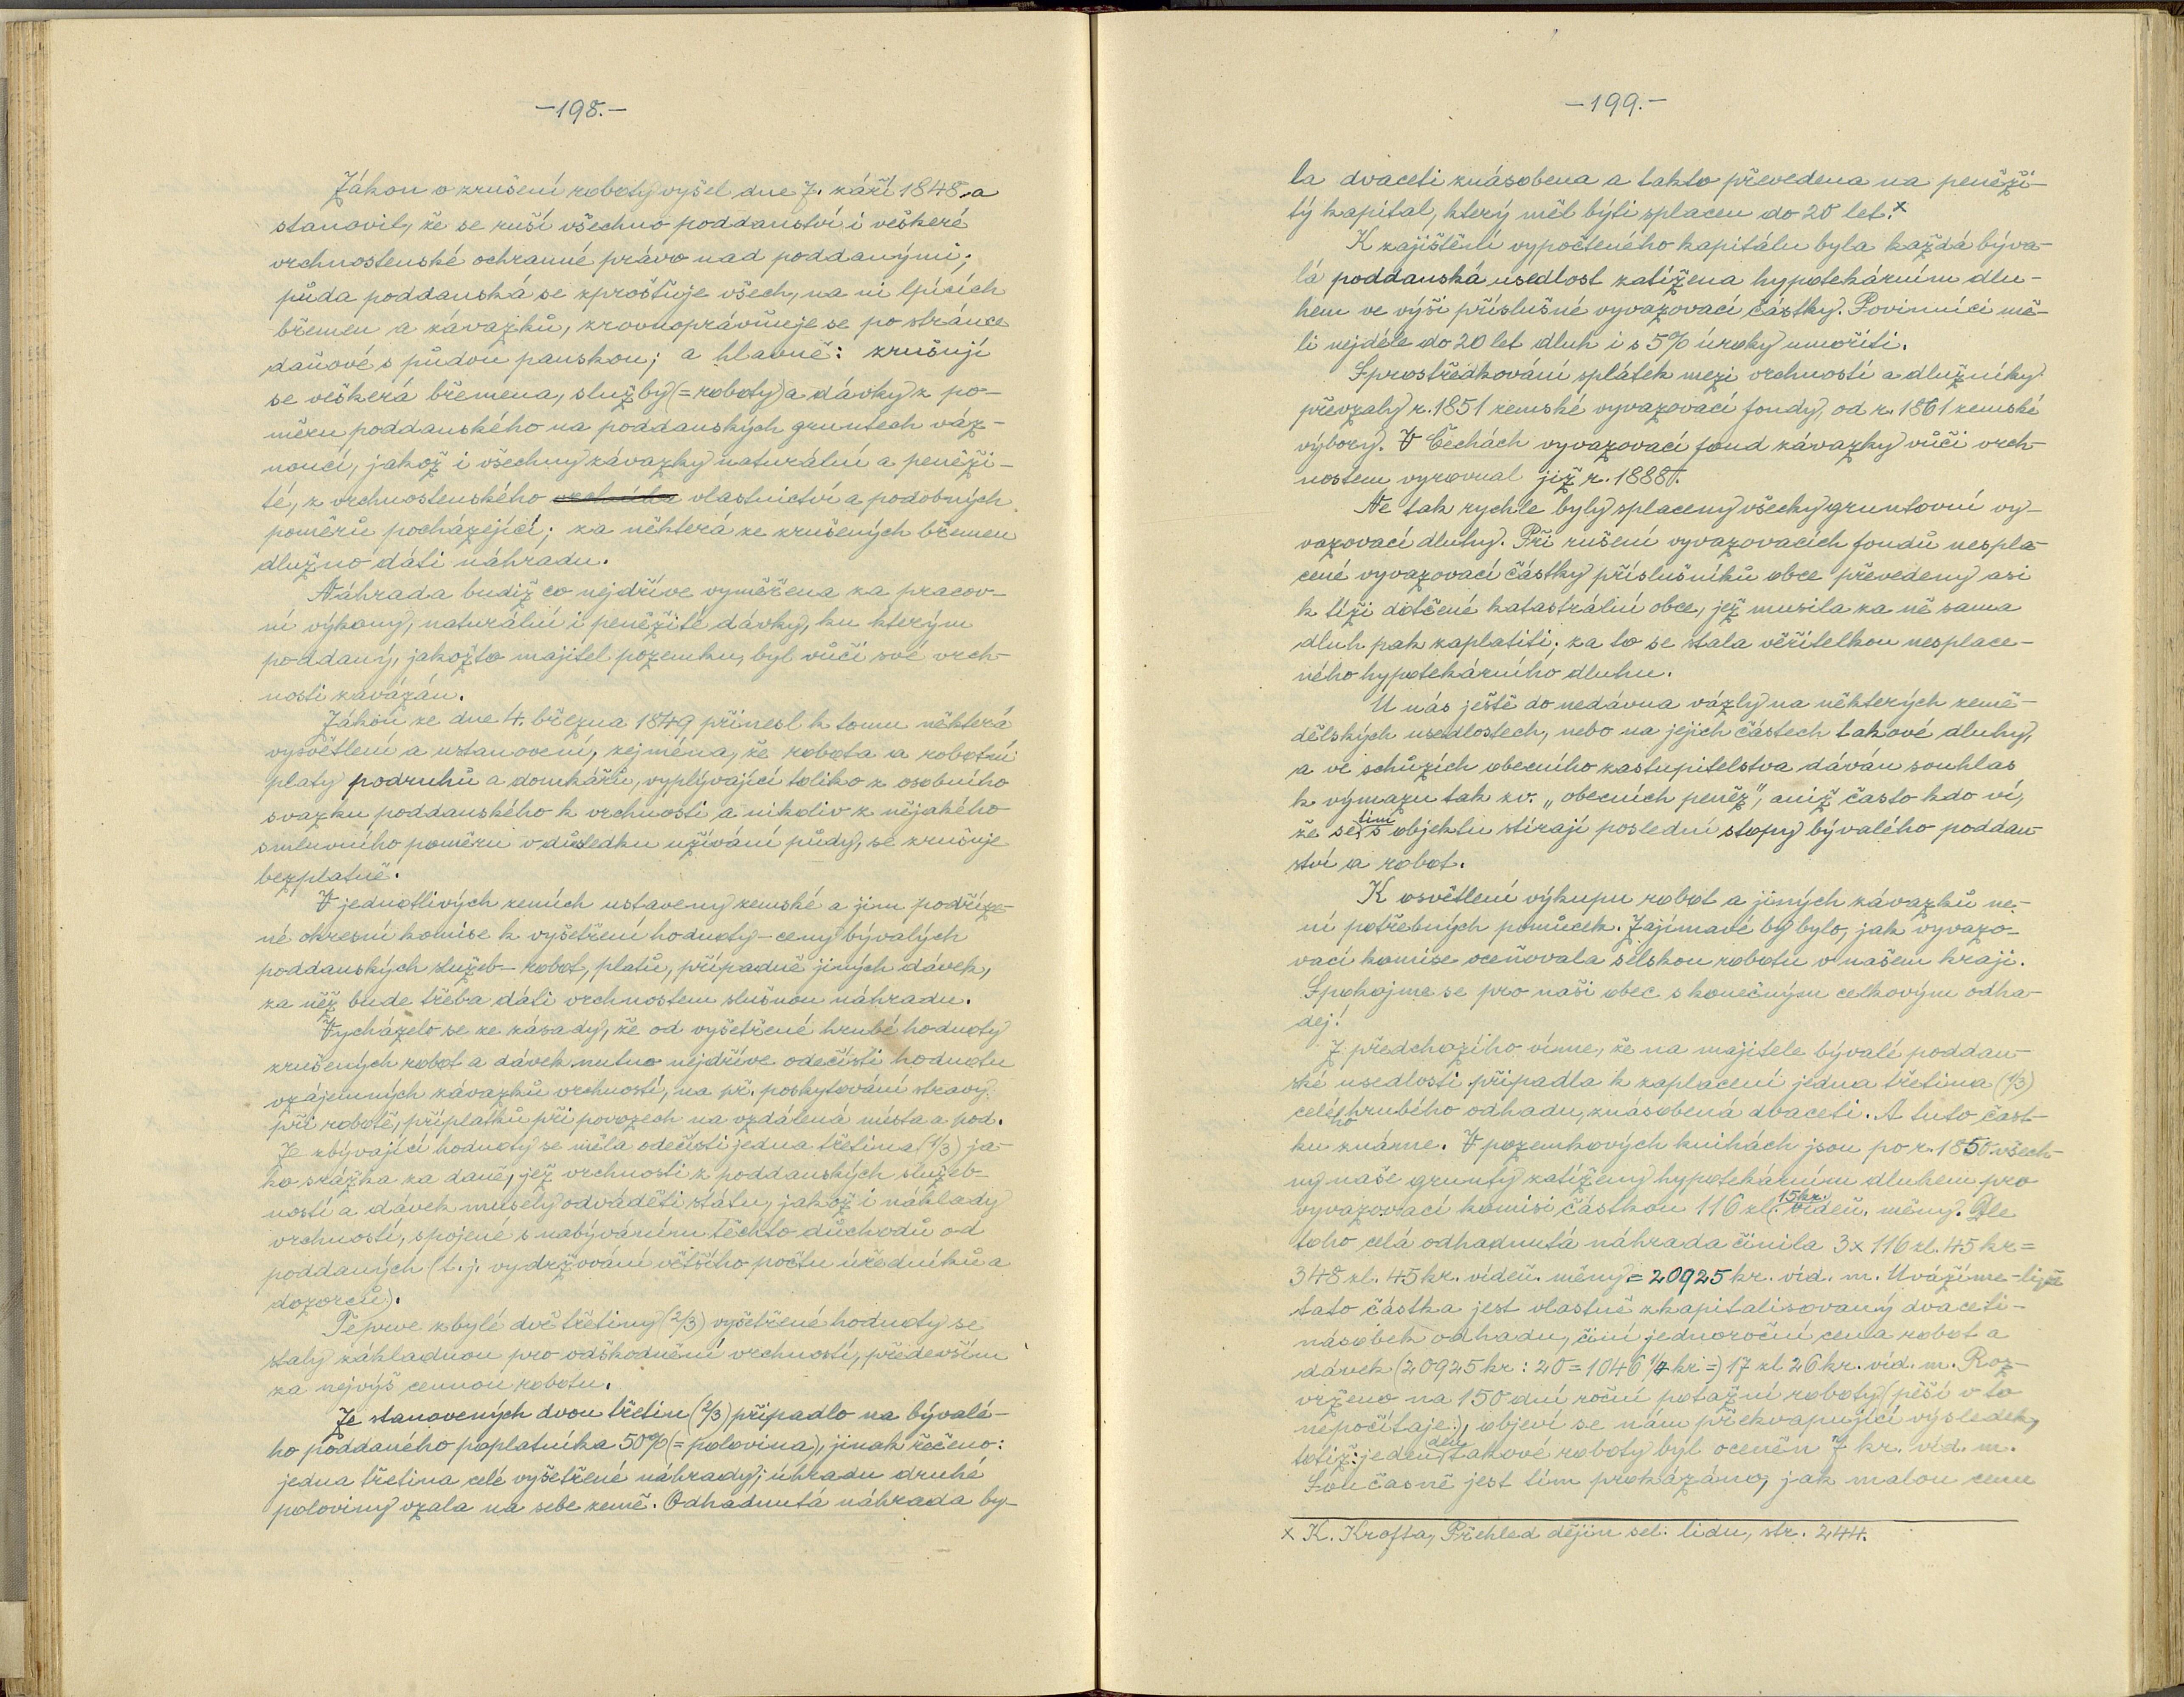 -198.-
Zákon o zrušení roboty vyšel dne 7. září 1848 a
stanovil, že se ruší všechno poddanství i veškeré
vrchnostenské ochranné právo nad poddanými;
půda poddanská se zprošťuje všech, na ni lpících
břemen a závazků, zrovnoprávňuje se po stránce
daňové s půdou panskou; a hlavně: zrušují
se veškerá břemena, služby (= roboty) a dávky z po-
měru poddanského na poddanských gruntech váz-
noucí, jakož i všechny závazky naturální a peněži-
té, z vrchnostenského vlastnictví a podobných
poměrů pocházející; za některá ze zrušených břemen
dlužno dáti náhradu.
Náhrada budiž co nejdříve vyměřena za pracov-
ní výkony, naturální i peněžité dávky, ku kterým
poddaný, jakožto majitel pozemku, byl vůči své vrch-
nosti zavázán.
Zákon ze dne 4. března 1849 přinesl k tomu některá
vysvětlení a ustanovení, zejména, že robota a robotní
platy podruhů a domkářů, vyplývající toliko z osobního
svazku poddanského k vrchnosti a nikoliv z nějakého
smluvního poměru v důsledku užívání půdy, se zrušuje
bezplatně.
V jednotlivých zemích ustaveny zemské a jim podříze-
né okresní komise k vyšetření hodnoty - ceny bývalých
poddanských služeb - robot, platů, případně jiných dávek,
za něž bude třeba dáti vrchnostem slušnou náhradu.
Vycházelo se ze zásady, že od vyšetřené hrubé hodnoty
zrušených robot a dávek nutno nejdříve odečísti hodnotu
vzájemných závazků vrchností, na př. poskytování stravy
při robotě, příplatků při povozech na vzdálená místa a pod.
Ze zbývající hodnoty se měla odečísti jedna třetina (1/3) ja-
ko srážka za daně, jež vrchnosti z poddanských služeb-
ností a dávek musely odváděti státu, jakož i náklady
vrchností, spojené s nabýváním těchto důchodů od
poddaných (t. j. vydržování většího počtu úředníků a
dozorců).
Teprve zbylé dvě třetiny (2/3) vyšetřené hodnoty se
staly základnou pro odškodnění vrchností, především
za nejvýš cennou robotu.
Ze stanovených dvou třetin (2/3) připadlo na bývalé-
ho poddaného poplatníka 50% (= polovina), jinak řečeno:
jedna třetina celé vyšetřené náhrady; úhradu druhé
poloviny vzala na sebe země. Odhadnutá náhrada by-
-199.-
la dvaceti znásobena a takto převedena na peněži-
tý kapitál, který měl býti splacen do 20 let.x
K zajištění vypočteného kapitálu byla každá býva-
lá poddanská usedlost zatížena hypotekárním dlu-
hem ve výši příslušné vyvazovací částky. Povinníci mě-
li nejdéle do 20 let dluh i s 5% úroky umořiti.
Sprostředkování splátek mezi vrchností a dlužníky
převzaly r. 1851 zemské vyvazovací fondy, od r. 1861 zemské
výbory. V Čechách vyvazovací fond závazky vůči vrch-
nostem vyrovnal již r. 1888.
Ne tak rychle byly splaceny všecky gruntovní vy-
vazovací dluhy. Při rušení vyvazovacích fondů nespla-
cené vyvazovací částky příslušníků obce převedeny asi
k tíži dotčené katastrální obce, jež musila za ně sama
dluh pak zaplatiti; za to se stala věřitelkou nesplace-
ného hypotekárního dluhu.
U nás ještě do nedávna vázly na některých země-
dělských usedlostech, nebo na jejich částech takové dluhy,
a ve schůzích obecního zastupitelstva dáván souhlas
k výmazu tak zv. „obecních peněz", aniž často kdo ví,
že se tím s objektu stírají poslední stopy bývalého poddan-
ství a robot.
K osvětlení výkupu robot a jiných závazků ne-
ní potřebných pomůcek. Zajímavé by bylo, jak vyvazo-
vací komise oceňovala selskou robotu v našem kraji.
Spokojme se pro naši obec s konečným celkovým odha-
dej!
Z předchozího víme, že na majitele bývalé poddan-
ské usedlosti připadla k zaplacení jedna třetina (1/3)
celého hrubého odhadu, znásobená dvaceti. A tuto část-
ku známe. V pozemkových knihách jsou po r. 1850 všech-
ny naše grunty zatíženy hypotekárním dluhem pro
vyvazovací komisi částkou 116 zl. 15 kr. vídeň. měny. Dle
toho celá odhadnutá náhrada činila 3x 116 zl. 45 kr =
348 zl. 45 kr. vídeň. měny = 20925 kr. víd. m. Uvážíme-li, že
tato částka jest vlastně zkapitalisovaný dvaceti-
násobek odhadu, činí jednoroční cena robot a
dávek (20925 kr : 20 = 1046 1/4 kr =) 17 zl 26 kr. víd. m. Roz-
vrženo na 150 dní roční potažní roboty (pěší v to
nepočítaje), objeví se nám překvapující výsledek,
totiž: jeden den takové roboty byl oceněn 7 kr. víd. m.
Současně jest tím prokázáno, jak malou cenu
x K. Krofta, Přehled dějin sel. lidu, str. 244.